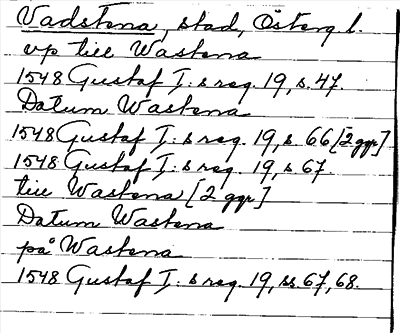 Vadstena, stad, Österg l.
vp till Wastena
1548 Gustaf I:s reg. 19, s. 47.
Datum Wastena
1548 Gustaf I:s reg. 19, s. 66 [2 ggr]
1548 Gustaf I:s reg. 19, s. 67.
till Wastena [2 ggr]
Datum Wastena
på Wastena
1548 Gustaf I:s reg. 19, ss. 67, 68.